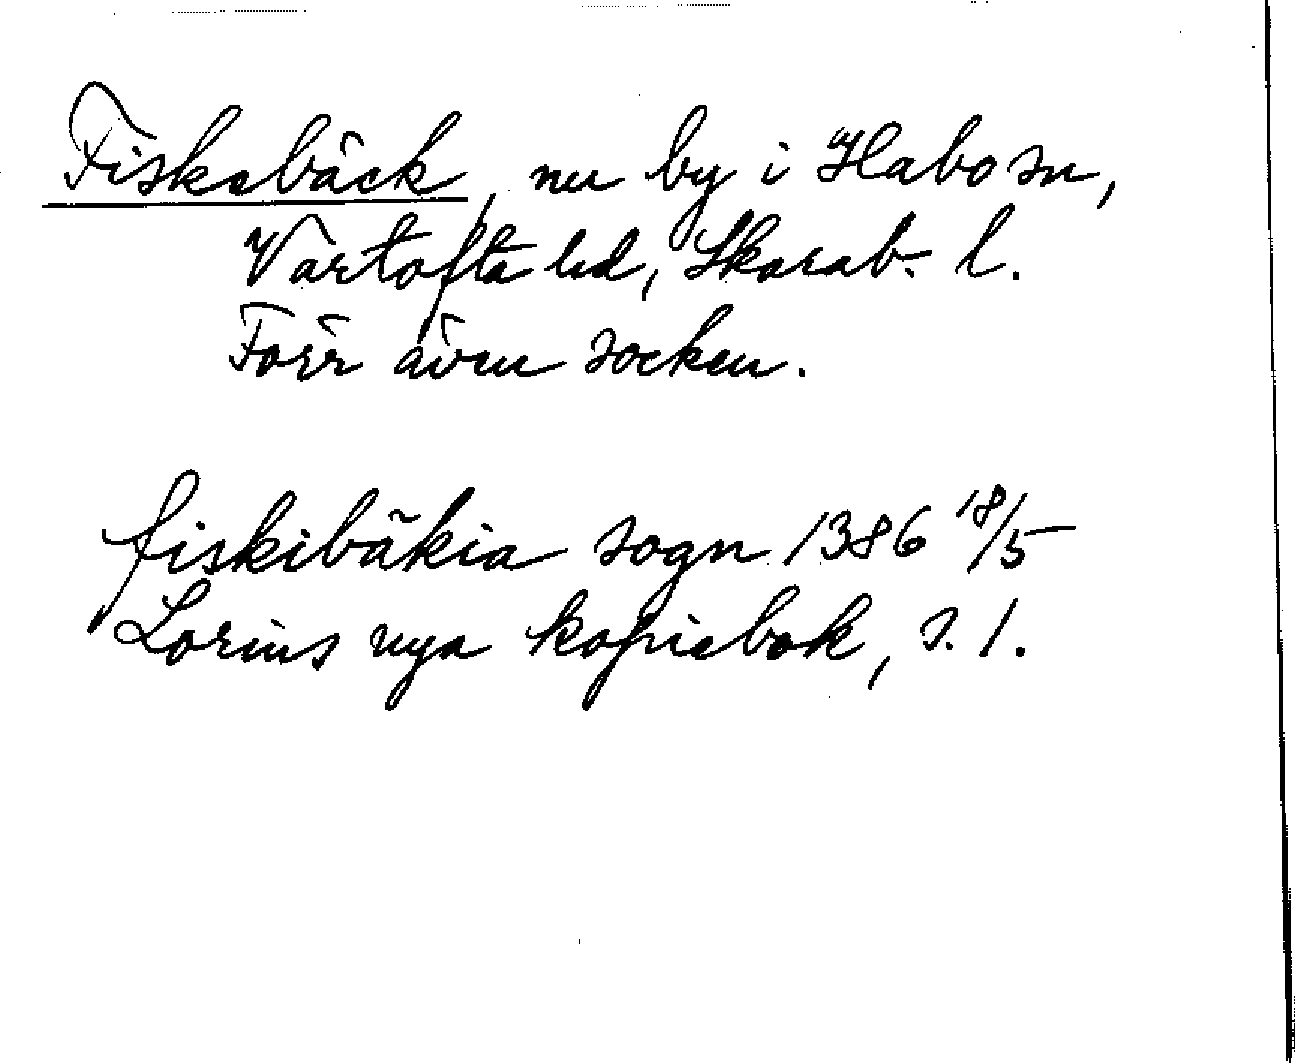 Fiskebäck, nu by i Habo sn,
Vartofta hd, Skarab. l.
Förr även socken.
fiskibäkia sogn 1386 18/5
Lorins nya kopiebok, s. 1.